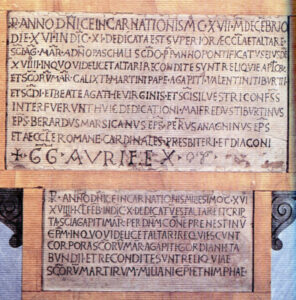 ANNO DNICE INCARNATIONIS M C XVII M DECEBRIO
DIE XVI INDIC XI DEDICATA EST SUPERIOR ÆCCLA ET ALTARE
SCI AG MAR AD NO PASCHALI SCDO PP ANNO PONTIFICATUS EIUS
XVIIII IN QUO VIDELICET ALTARI RECONDITE SUNT RELIQUIE APLOR
ET SCORUM AR CALIXTI MARTINI PAPE AGAPITI VALENTINI TIBURTII
ET SCDI ET BEATE AGATHE VIRGINIS ET SCI SILVESTRI CONFESS
INTERFUERUNT HUIC DEDICATIONI MAIFREDUS TIBURTINUS
EPS BERARDUS MARSICANUS EPS PETRUS ANAGNINUS EPS
ET ÆCCLE ROMANE CARDINALES PRESBITERI ET DIACONI
ANNO DNICE INCARNATIONIS MILLESIMO C XVI
XVIIII KL FEB INDIC X DEDICATU EST ALTARE IT CRIP
TA SCI AGAPITI MAR PER DNM CONE PRENESTINU
EPM IN QUO VIDELICET ALTARI REQUIESCUNT
CORPORA SCORUM AR AGAPITI GORDIANI ET A
BUNDII ET RECONDITE SUNT RELIQUIAE
SCORUM MARTIRUM MILIANI EPI ET NIMPHAE